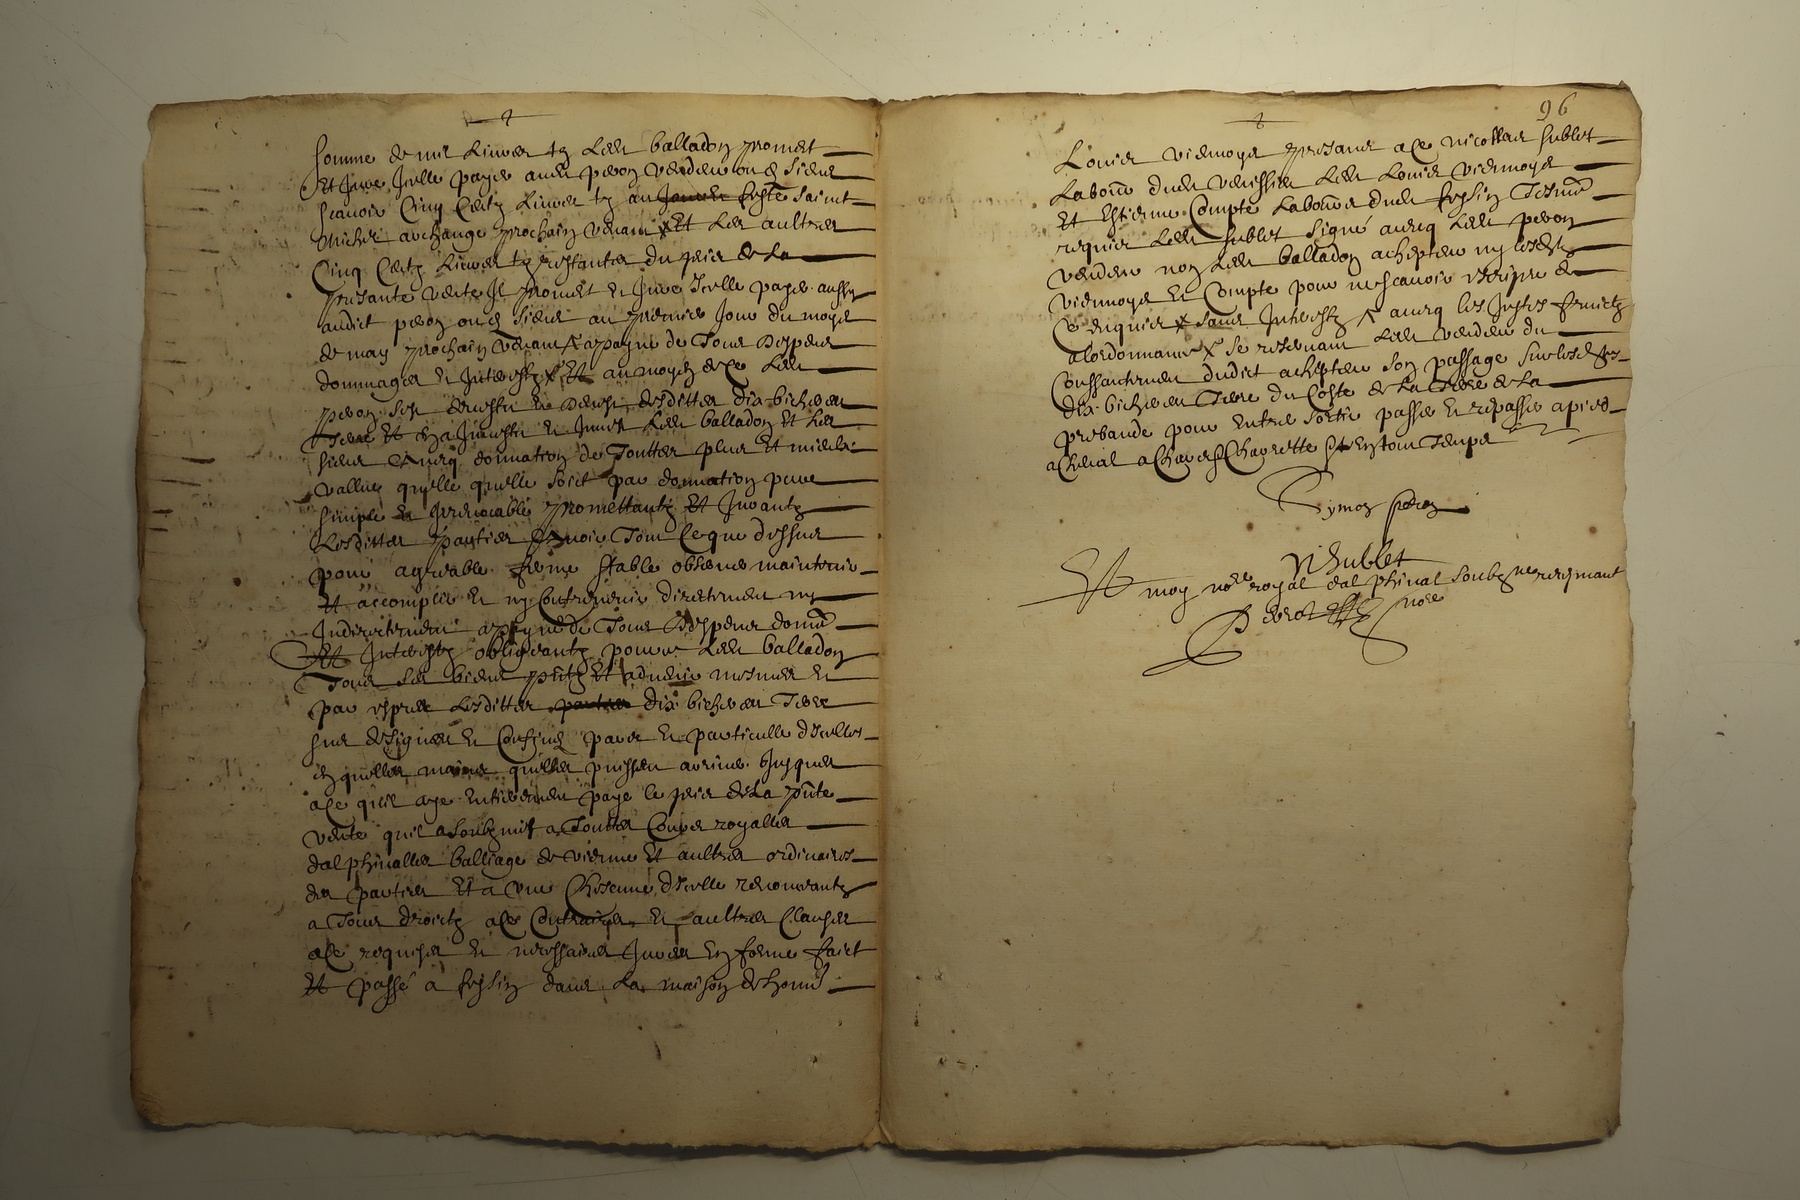 somme de mil livres tz ledt balladon promet
et jure Icelle payer audt peron vendeur ou es siens
scavoir Cinq Centz livres tz au jour feste sainct
michel archange prochain venant Et les aultres
Cinq Centz livres tz restantes du prix de la
presante vente Il promet et jure Icelle payer aussy
audict peron ou es siens au premier Jour du moys
de may prochain venant a payne de Tous despens
dommages et Interestz Et au moyen de ce ledt
peron sest desvestu et desdittes dix bicherees
Terre Et en a Investu et ledt balladon Et les
siens Avecq donnation de Touttes plus Et mieulx
vallue quelle quelle soict par donnation pure
simple et Irrevocable promettantz Et Jurantz
Lesdittes parties avoir Tout ce que dessus
pour agreable ferme stable observer maintenir
Et accomplir et ny Contrevenir directement ny
Indirectement a payne de Tous despens domm
Et Interestz obligeantz ledt balladon
Tous ses biens pntz Et advenir mesmes et
par expres Lesdittes parties dix bicherees Terre
sus designees et Confinees
en quelles mains quelles puissent arriver Jusques
a ce quil aye entierement paye le prix de la pnte
vente quil a soubzmis a Touttes Cours royalles
dalphinalles balliage de vienne Et aultres ordinaires
des parties Et a une Chescune d'Icelle renonceantz
a Tous droictz a ce Contraires et aultres Clauses
a ce requises et necessaires Jurees En forme faict
Et passé a feysin dans la maison de honn
96
Louis viermoys presans a ce nicollas sublet
Labour dudt ledt Louis viermoys
Et Estienne Compte Laboureur dudt feysin Tesmo
requis ledt sublet signé avecq ledt peron
vendeur non ledt balladon achepteur ny lesdt
viermoys et Compte pour ne scavoir escripre de
ce enquis sans Interestz avecq les
a lordonnance se reservant ledt vendeur du
Conssantement dudict achepteur son passage sur lesd
dix bicherees Terre du Coste de la Terre de la
prebande pour Entrer sortir passer et repasser a pied
a Cheval a Chars Charrette Et En tout Temps
Symon peron
N Sublet
Et moy nore royal dalphinal soubzne recepvant
nore